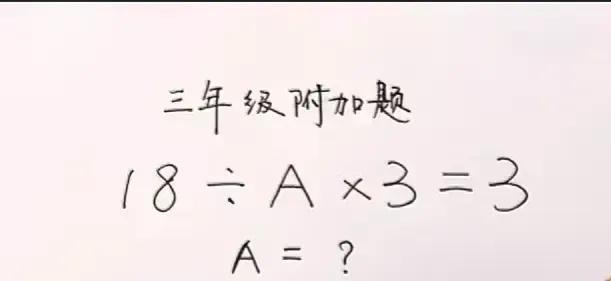 三年级附加题
18÷A×3=3
A=?